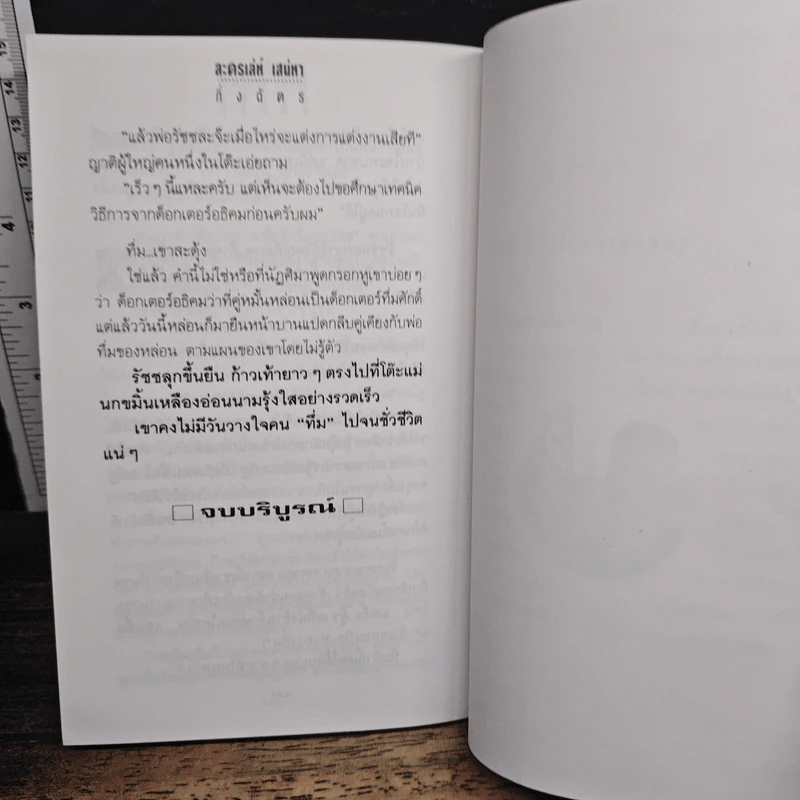 ละครเล่ห์ เสน่หา
กิ่งฉัตร
"แล้วพ่อรัชชละจ๊ะเมื่อไหร่จะแต่งการแต่งงานเสียที"
ญาติผู้ใหญ่คนหนึ่งในโต๊ะเอ่ยถาม
"เร็วๆ นี้แหละครับ แต่เห็นจะต้องไปขอศึกษาเทคนิค
วิธีการจากด็อกเตอร์อธิคมก่อนครับผม"
ทึ่ม...เขาสะดุ้ง
ใช่แล้ว คำนี้ไม่ใช่หรือที่นัฏศิมาพูดกรอกหูเขาบ่อยๆ
ว่า ด็อกเตอร์อธิคมว่าที่คู่หมั้นหล่อนเป็นด็อกเตอร์ทึ่มศักดิ์
แต่แล้ววันนี้หล่อนก็มายืนหน้าบานแปดกลีบคู่เคียงกับพ่อ
ทึ่มของหล่อน ตามแผนของเขาโดยไม่รู้ตัว
รัชชลุกขึ้นยืน ก้าวเท้ายาวๆ ตรงไปที่โต๊ะแม่
นกขมิ้นเหลืองอ่อนนามรุ้งใสอย่างรวดเร็ว
เขาคงไม่มีวันวางใจคน "ทึ่ม" ไปจนชั่วชีวิต
แน่ๆ
จบบริบูรณ์
15
14
13
12
11
4
3